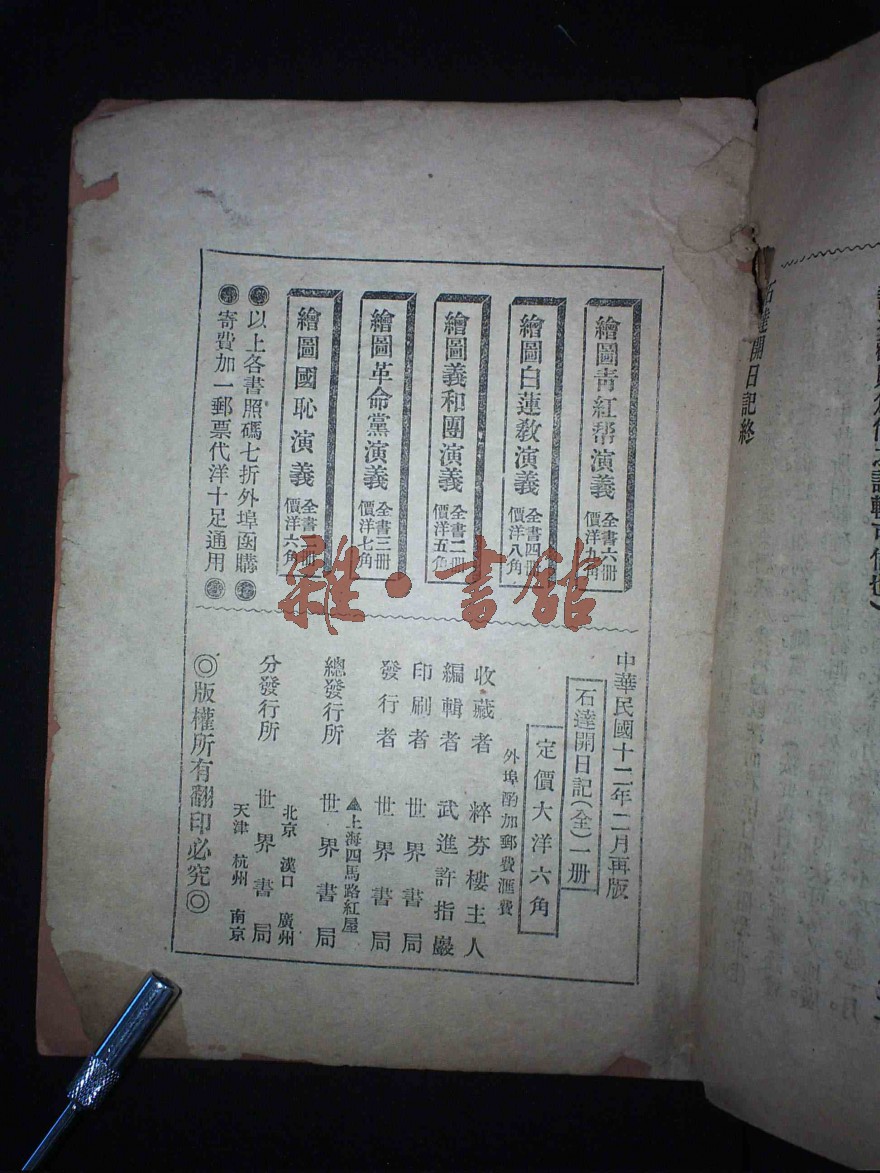 石達開日記終
繪圖青紅幇演義 全書六册 價洋九角
繪圖白蓮教演義 全書四册 價洋八角
繪圖義和團演義 全書二册 價洋五角
繪圖革命黨演義 全書三册 價洋七角
繪圖國恥演義 價洋六角
以上各書照碼七折外埠函購
寄費加一郵票代洋十足通用
雜·書館
中華民國十二年二月再版
石達開日記(全)一册
定價大洋六角
外埠酌加郵費滙費
收藏者 粹芬樓主人
編輯者 武進許指嚴
印刷者 世界書局
發行者 世界書局
總發行所 上海四馬路紅屋 世界書局
分發行所 北京 漢口 廣州 世界書局 天津 杭州 南京
◎版權所有翻印必究◎